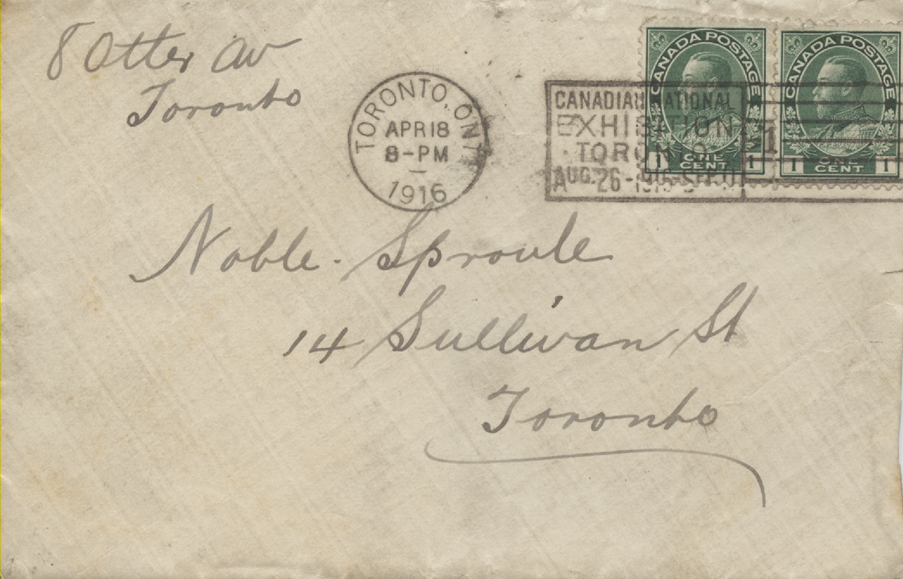 8 Otter Av
Toronto
TORONTO, ONT.
APR 18
8-PM
1916
CANADIAN NATIONAL
EXHIBITION
TORONTO
AUG. 26 - 1916 -
1
CANADA POSTAGE
1 ONE CENT 1
CANADA POSTAGE
1 ONE CENT 1
Noble Sproule
14 Sullivan St
Toronto